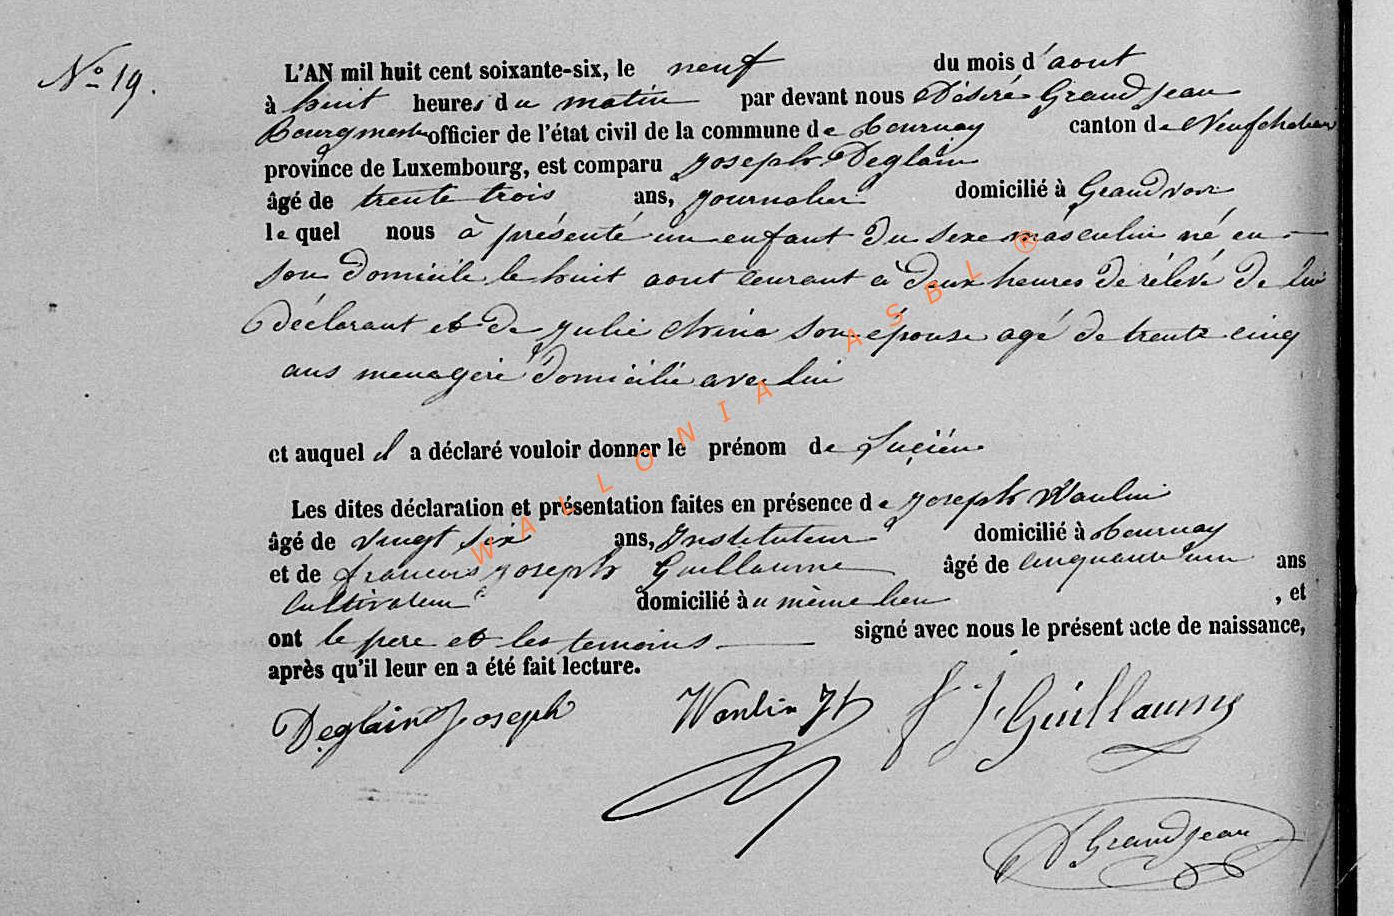 N° 19.
L'AN mil huit cent soixante-six, le neuf du mois d'aout
à huit heures du matin par devant nous Désiré Grandjean
Bourgmestre officier de l'état civil de la commune de Tournay canton de Neufchateau
province de Luxembourg, est comparu Joseph Deglain
âgé de trente trois ans, journalier domicilié à Grandvoir
le quel nous à présenté un enfant du sexe masculin né en
son domicile le huit aout courant à deux heures de rélevé de lui
déclarant et de Julie Chrina son épouse agé de trente cinq
ans menagere domicilié avec lui
et auquel il a déclaré vouloir donner le prénom de Luçien
Les dites déclaration et présentation faites en présence de Joseph Wanlin
âgé de vingt six ans, Instituteur domicilié à Tournay
et de francois joseph Guillaume âgé de cinquante un ans
Cultivateur domicilié au même lieu , et
ont le pere et les temoins signé avec nous le présent acte de naissance,
après qu'il leur en a été fait lecture.
Deglain Joseph Wanlin Jh F J Guillaume
D Grandjean
WALLONIA ASBL ®